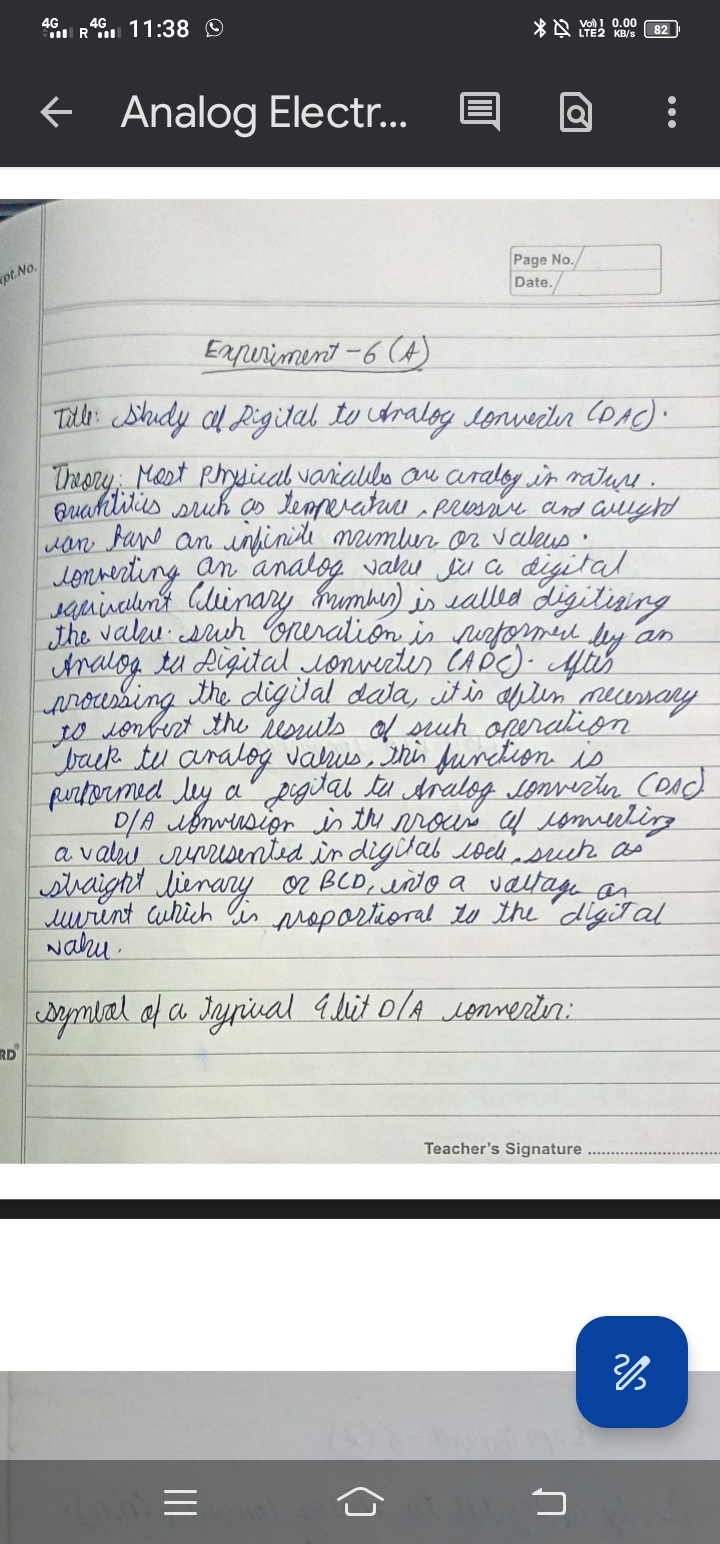 4G R 4G 11:38 Vo) 1 LTE2 0.00 KB/s 82
Analog Electr...
xpt.No.
Page No.
Date.
Experiment-6 (A)
Title: Study of Digital to Analog converter (DAC).
Theory: Most Physical variables are analog in nature.
Quantities such as temperature, pressure and weight
can have an infinite number or values.
converting an analog value to a digital
equivalent (binary number) is called digitizing
the value. such operation is performed by an
Analog to Digital converter (ADC). After
processing the digital data, it is often necessary
to convert the results of such operation
back to analog values, this function is
performed by a Digital to Analog converter (DAC)
D/A conversion is the process of converting
a value represented in digital code, such as
straight binary or BCD, into a voltage or
current which is proportional to the digital
value.
symbol of a typical 4 bit D/A converter:
RD
Teacher's Signature